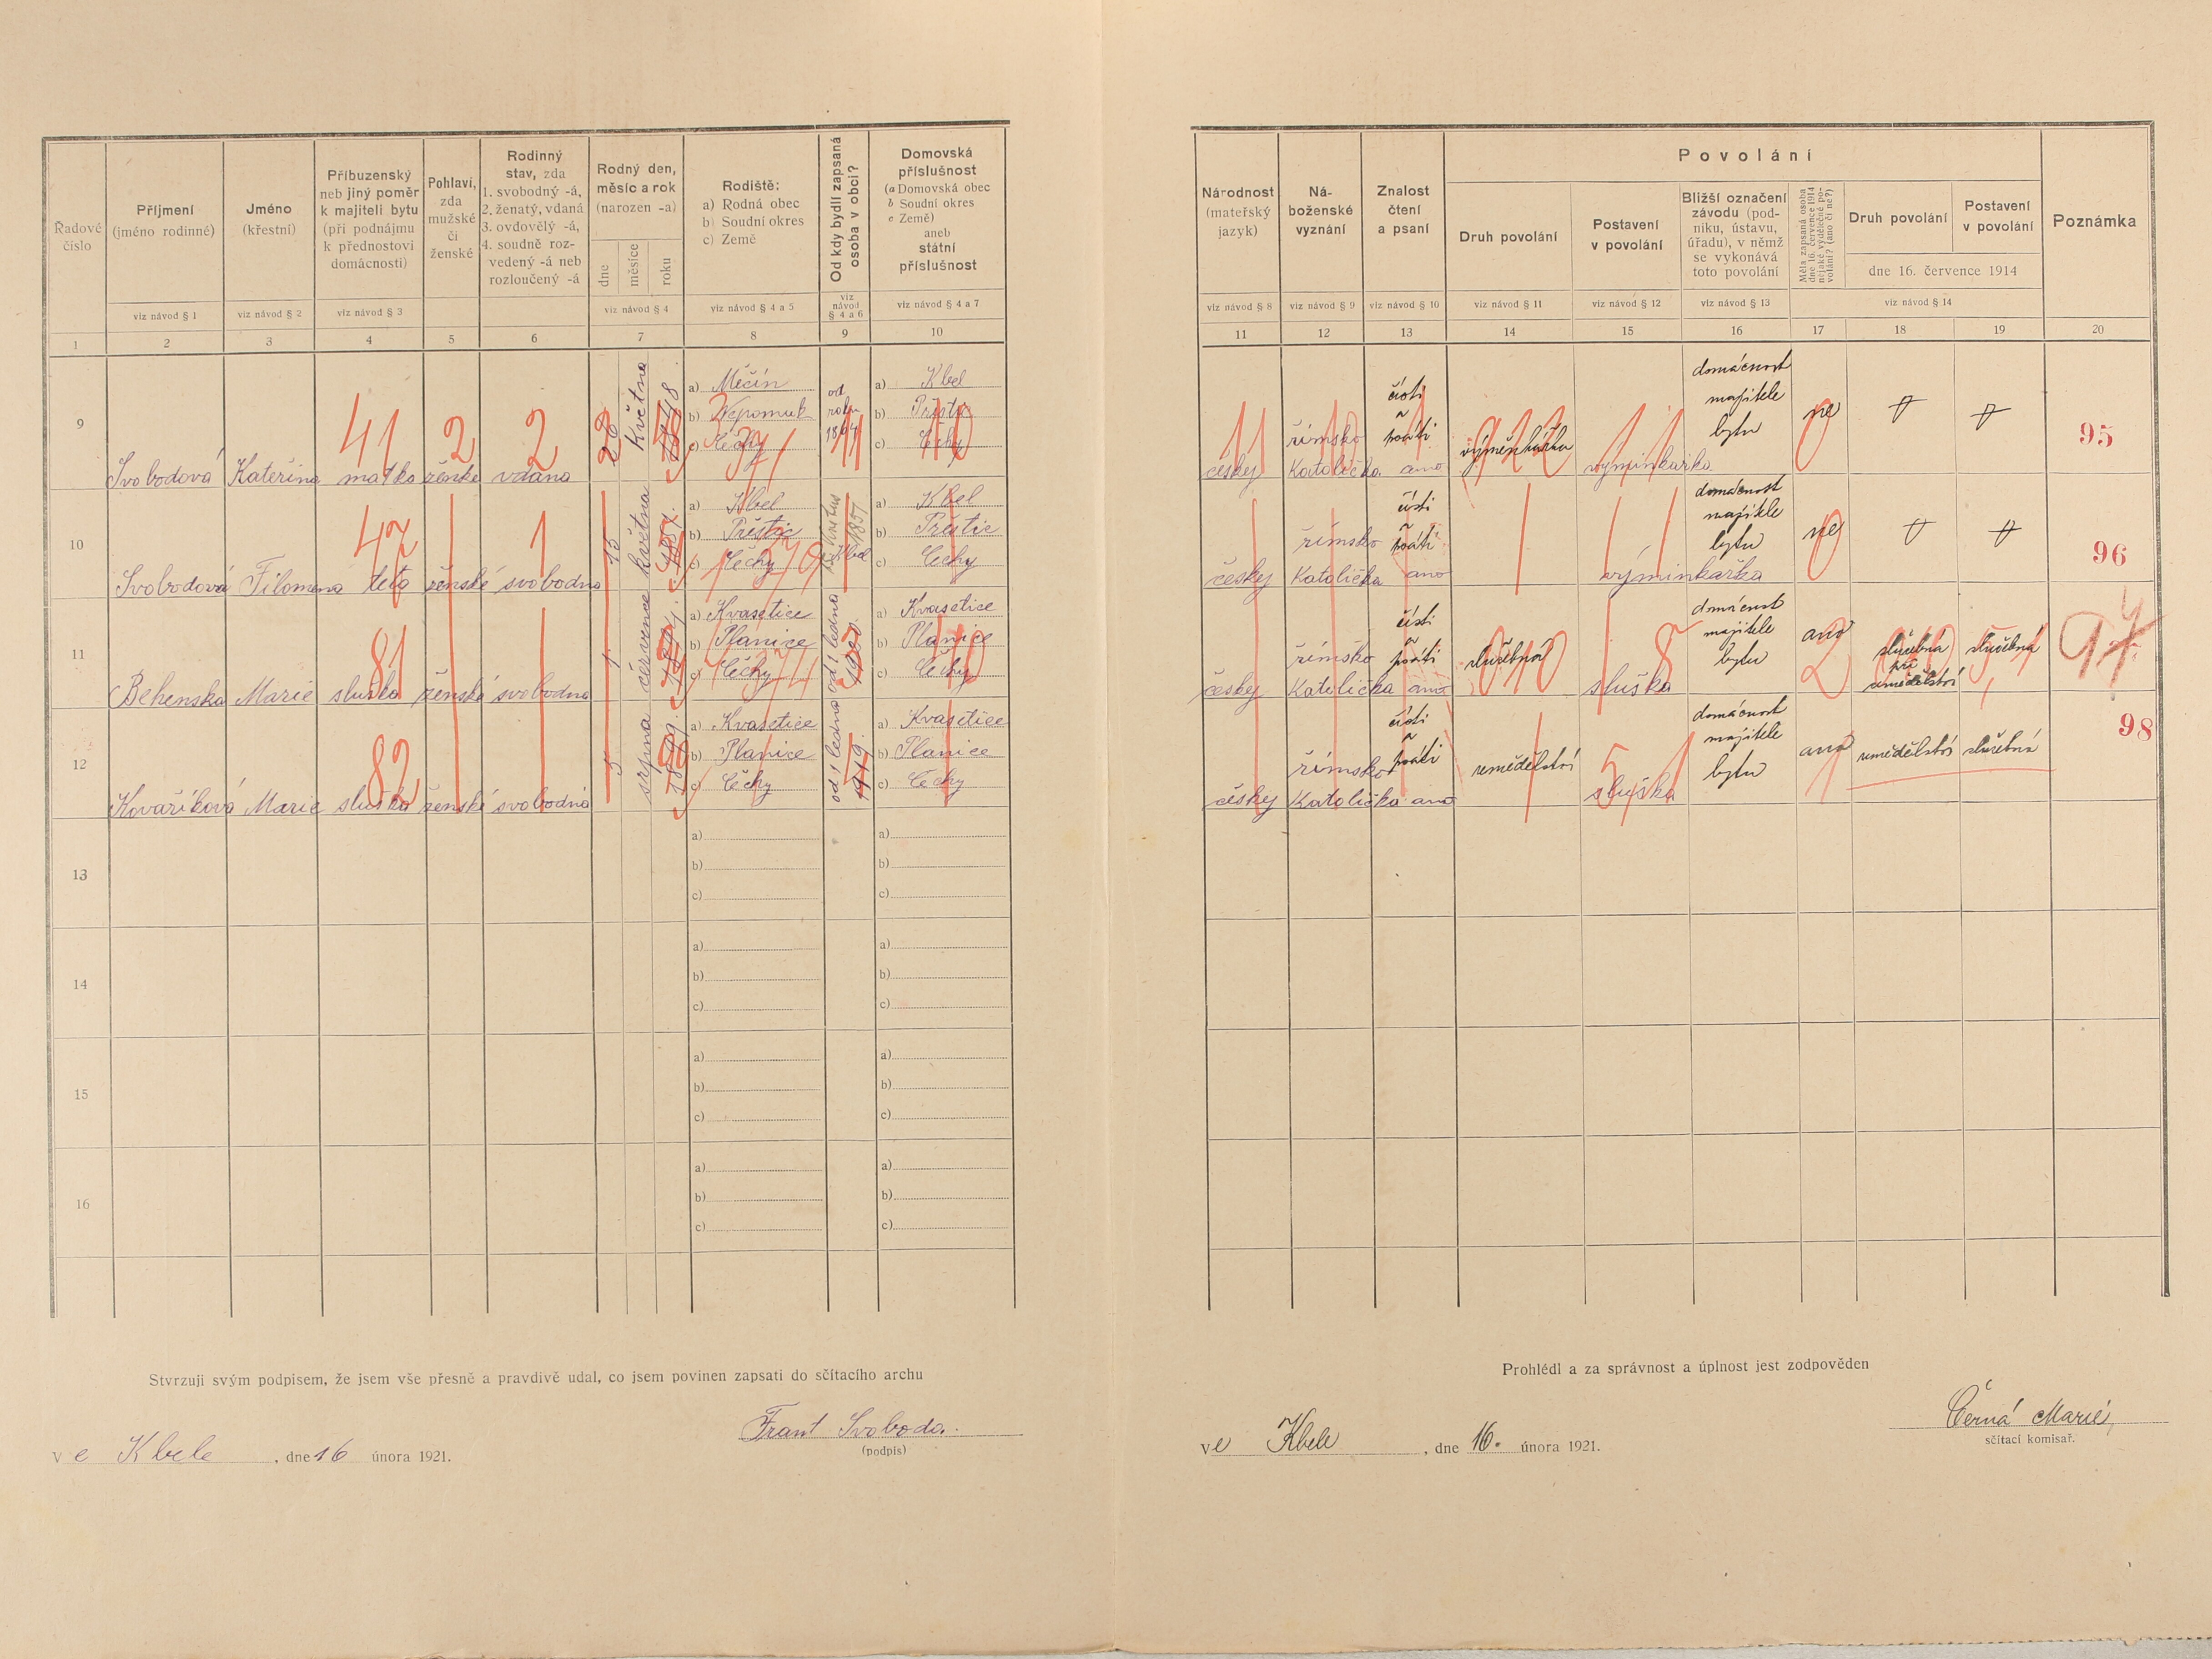 Řadové číslo
Příjmení (jméno rodinné)
Jméno (křestní)
Příbuzenský neb jiný poměr k majiteli bytu (při podnájmu k přednostovi domácnosti)
Pohlaví, zda mužské či ženské
Rodinný stav, zda 1. svobodný -á, 2. ženatý, vdaná 3. ovdovělý -á, 4. soudně rozvedený -á neb rozloučený -á
Rodný den, měsíc a rok (narozen -a)
dne měsíce roku
Rodiště: a) Rodná obec b) Soudní okres c) Země
Od kdy bydlí zapsaná osoba v obci?
Domovská příslušnost (a Domovská obec b Soudní okres c Země) aneb státní příslušnost
viz návod § 1
viz návod § 2
viz návod § 3
viz návod § 4
viz návod § 4 a 5
viz návod § 4 a 6
viz návod § 4 a 7
1 2 3 4 5 6 7 8 9 10
Národnost (mateřský jazyk)
Náboženské vyznání
Znalost čtení a psaní
Povolání
Druh povolání
Postavení v povolání
Bližší označení závodu (podniku, ústavu, úřadu), v němž se vykonává toto povolání
Měla zapsaná osoba dne 16. července 1914 nějaké výdělečné povolání? (ano či ne?)
Druh povolání
Postavení v povolání
dne 16. července 1914
Poznámka
viz návod § 8
viz návod § 9
viz návod § 10
viz návod § 11
viz návod § 12
viz návod § 13
viz návod § 14
11 12 13 14 15 16 17 18 19 20
9 Svobodová Kateřina matka ženské vdana 28 Května 1848
a) Měčín
b) Nepomuk
c) Čechy
od roku
a) Kbel
b) Přešty
c) Čechy
41 2 2
česky římsko Katolička čísti psáti ano výměnkářka vyminkařka domácnost majitele bytu ne 95
10 Svobodová Filomena teta ženské svobodna 15 května
a) Kbel
b) Přeštic
c) Čechy
a) Kbel
b) Přeštic
c) Čechy
47 1
česky římsko Katolička čísti psáti ano výminkařka domácnost majitele bytu ne 96
11 Behenska Marie služka ženské svobodna 1 července
a) Kvasetice
b) Planice
c) Čechy
od 1 ledna 1920.
a) Kvasetice
b) Planice
c) Čechy
81
česky římsko Katolička čísti psáti ano služebná služka domácnost majitele bytu ano služebná při zemědělství služebná 97
12 Kovaříková Marie služka ženské svobodná 5 srpna 1899.
a) Kvasetice
b) Planice
c) Čechy
od 1 ledna 1919.
a) Kvasetice
b) Planice
c) Čechy
82
česky římsko Katolička čísti psáti ano zemědělství služka domácnost majitele bytu ano zemědělství služebná 98
13 a) b) c) a) b) c)
14 a) b) c) a) b) c)
15 a) b) c) a) b) c)
16 a) b) c) a) b) c)
Stvrzuji svým podpisem, že jsem vše přesně a pravdivě udal, co jsem povinen zapsati do sčítacího archu
Frant Svoboda.
(podpis)
Ve Kbele, dne 16 února 1921.
Prohlédl a za správnost a úplnost jest zodpověden
Černá Marie,
sčítací komisař.
Ve Kbele, dne 16. února 1921.